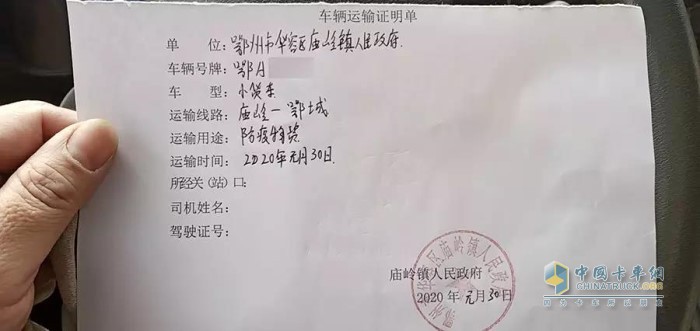 车辆运输证明单
单 位:鄂州市华容区庙岭镇人民政府.
车辆号牌:鄂A
车 型:小货车
运输线路:庙岭一鄂城
运输用途:防疫物资
运输时间:2020年元月30日
所经关(站)口:
司机姓名:
驾驶证号:
庙岭镇人民政府
2020年元月30日
鄂州市华容区庙岭镇人民政府
中国卡车网
CHINATRUCK.ORG